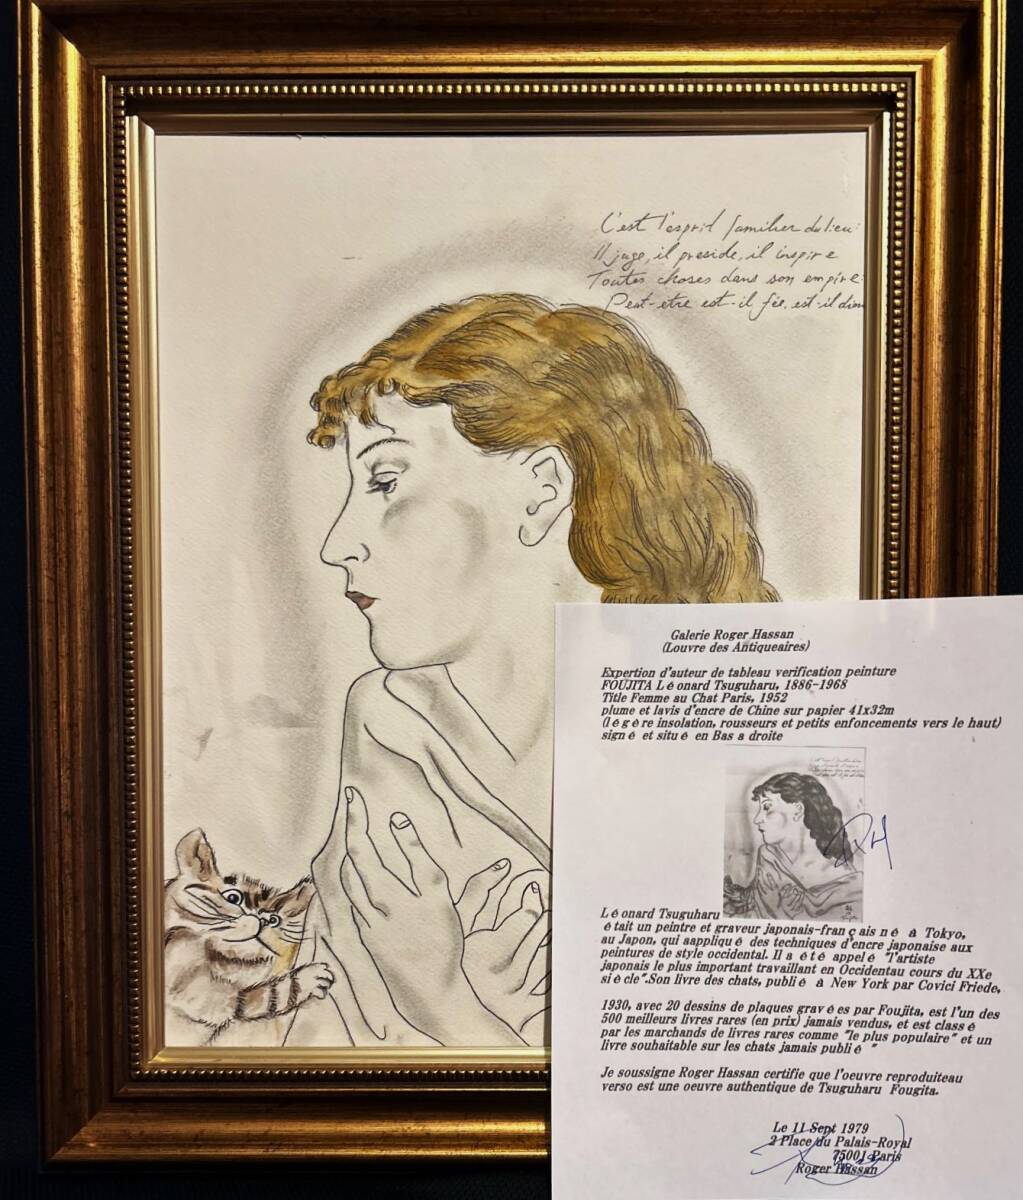 C'est l'esprit familier du lieu:
Il juge, il preside, il inspire
Toutes choses dans son empire:
Peut-etre est-il fée, est-il dieu
Galerie Roger Hassan
(Louvre des Antiqueaires)
Expertion d'auteur de tableau verification peinture
FOUJITA Lé onard Tsuguharu, 1886-1968
Title Femme au Chat Paris, 1952
plume et lavis d'encre de Chine sur papier 41x32m
(lé gè re insolation, rousseurs et petits enfoncements vers le haut)
signé et situé en Bas a droite
RH
Lé onard Tsuguharu
é tait un peintre et graveur japonais-franç ais né à Tokyo,
au Japon, qui aappliqué des techniques d'encre japonaise aux
peintures de style occidental. Il a été appelé "l'artiste
japonais le plus important travaillant en Occidentau cours du XXe
siè cle".Son livre des chats, publié à New York par Covici Friede,
1930, avec 20 dessins de plaques gravé es par Foujita, est l'un des
500 meilleurs livres rares (en prix) jamais vendus, et est classé
par les marchands de livres rares comme "le plus populaire" et un
livre souhaitable sur les chats jamais publié "
Je soussigne Roger Hassan certifie que l'oeuvre reproduiteau
verso est une oeuvre authentique de Tsuguharu Fougita.
Le 11 Sept 1979
2 Place du Palais-Royal
75001 Paris
Roger Hassan